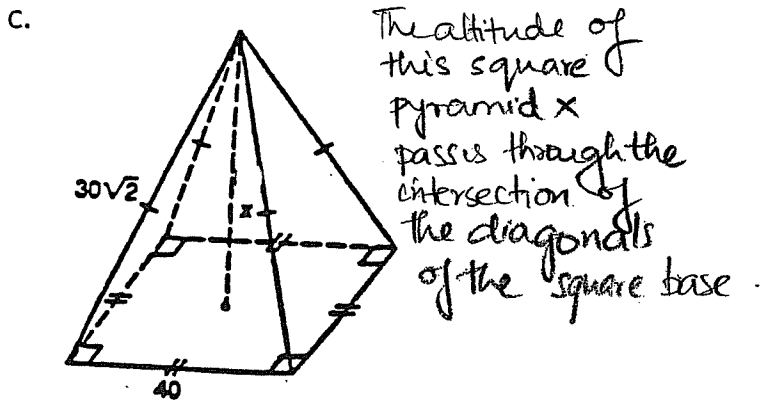 C.
The altitude of
this square
pyramid x
passes through the
intersection of
the diagonals
of the square base.
30√2
x
40